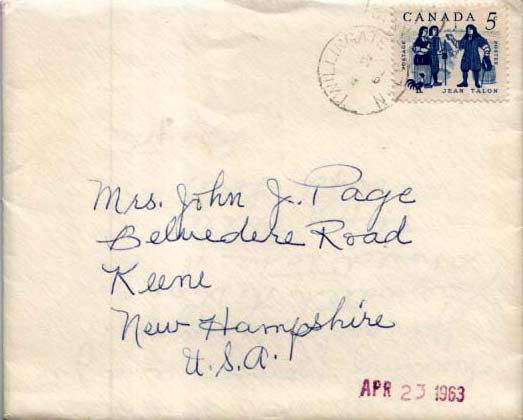 CANADA 5
POSTAGE POSTES
JEAN TALON
TWILLINGATE
Mrs. John J. Page
Belvedere Road
Keene
New Hampshire
U.S.A.
APR 23 1963